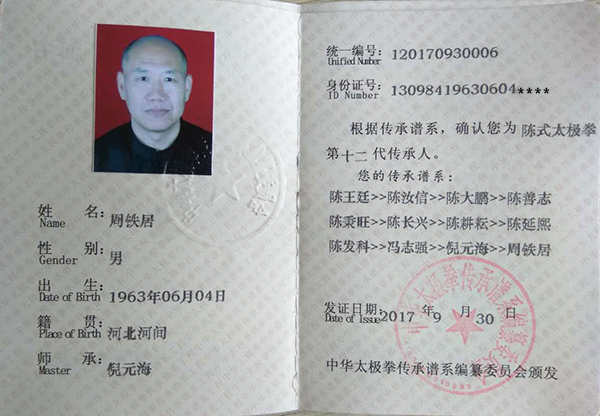 姓 名: 周铁居
Name
性 别: 男
Gender
出 生: 1963年06月04日
Date of Birth
籍 贯: 河北河间
Place of Birth
师 承: 倪元海
Master
统一编号: 120170930006
Unified Number
身份证号: 13098419630604****
ID Number
根据传承谱系，确认您为 陈式太极拳
第十二代传承人。
您的传承谱系:
陈王廷>>陈汝信>>陈大鹏>>陈善志
陈秉旺>>陈长兴>>陈耕耘>>陈延熙
陈发科>>冯志强>>倪元海>>周铁居
发证日期: 2017 年 9 月 30 日
Date of Issue
中华太极拳传承谱系编纂委员会
中华太极拳传承谱系编纂委员会颁发